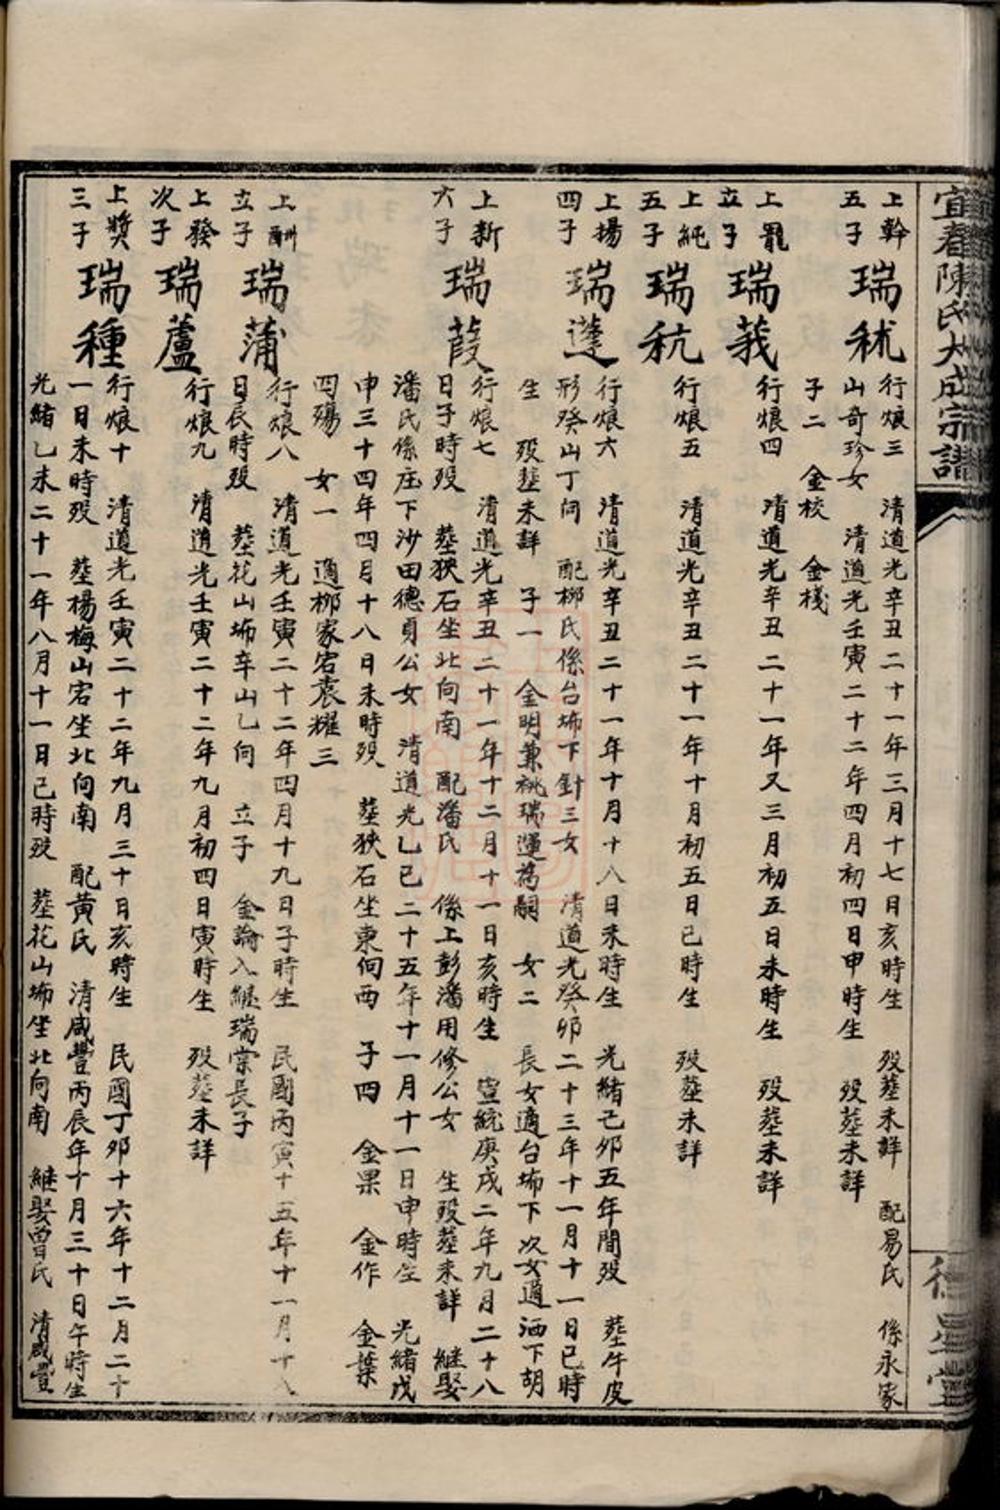 宜春陳氏大成宗譜
德星堂
上幹五子
瑞秫
行烺三 清道光辛丑二十一年三月十七日亥時生 歿塟未詳 配易氏 係永家
山奇珍女 清道光壬寅二十二年四月初四日申時生 歿塟未詳
子二 金校 金棧
上羆立子
瑞莪
行烺四 清道光辛丑二十一年又三月初五日未時生 歿塟未詳
上純五子
瑞秔
行烺五 清道光辛丑二十一年十月初五日巳時生 歿塟未詳
上揚四子
瑞蓬
行烺六 清道光辛丑二十一年十月十八日未時生 光緒己卯五年間歿 塟牛皮
形癸山丁向 配柳氏係台埲下針三女 清道光癸卯二十三年十一月十一日巳時
生 歿塟未詳 子一 金明兼祧瑞運為嗣 女二 長女適台埲下 次女適洒下胡
上新六子
瑞葭
行烺七 清道光辛丑二十一年十二月十一日亥時生 宣統庚戌二年九月二十八
日子時歿 塟狹石坐北向南 配潘氏 係上彭潘用修公女 生歿塟未詳 繼娶
潘氏係庄下沙田德貞公女 清道光乙巳二十五年十一月十一日申時生 光緒戊
申三十四年四月十八日未時歿 塟狹石坐東向西 子四 金果 金作 金葉
四殤 女一 適柳家宕袁耀三
上酬立子
瑞蒲
行烺八 清道光壬寅二十二年四月十九日子時生 民國丙寅十五年十一月十八
日辰時歿 塟花山埲辛山乙向 立子 金論入繼瑞棠長子
上發次子
瑞蘆
行烺九 清道光壬寅二十二年九月初四日寅時生 歿塟未詳
上獎三子
瑞種
行烺十 清道光壬寅二十二年九月三十日亥時生 民國丁卯十六年十二月二十
一日未時歿 塟楊梅山宕坐北向南 配黃氏 清咸豐丙辰年十月三十日午時生
光緒乙未二十一年八月十一日巳時歿 塟花山埲坐北向南 繼娶曾氏 清咸豐